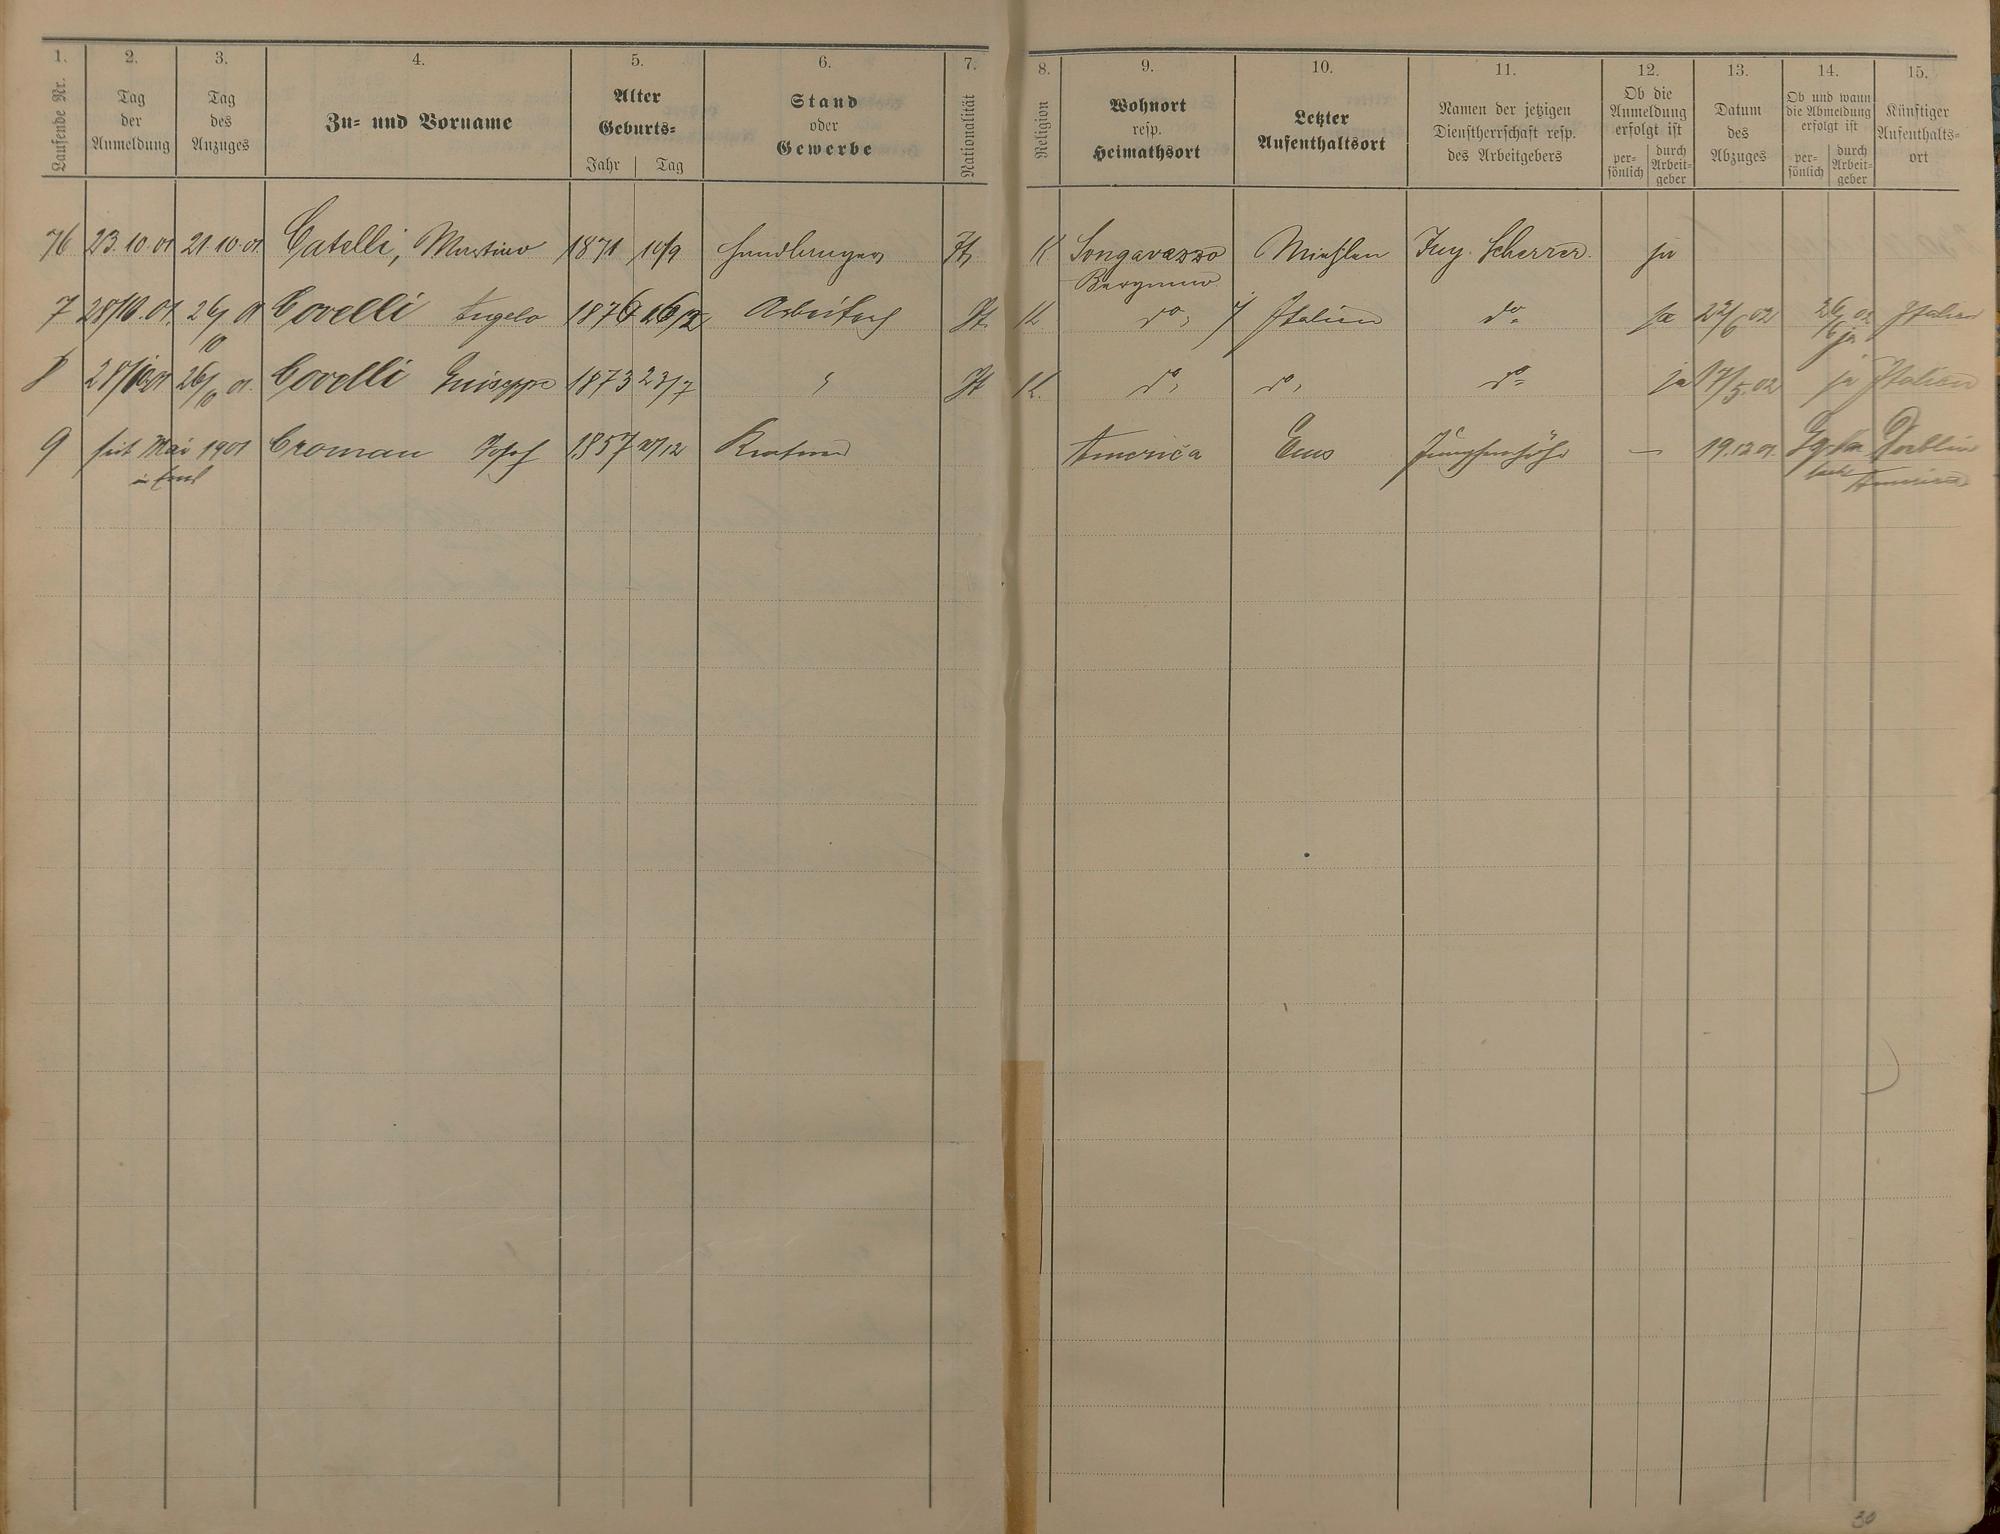 1. 2. 3. 4. 5. 6. 7. 8. 9. 10. 11. 12. 13. 14. 15.
Laufende Nr.
Tag der Anmeldung
Tag des Anzuges
Zu- und Vorname
Alter
Geburts-
Jahr Tag
Stand oder Gewerbe
Nationalität
Religion
Wohnort resp. Heimathsort
Letzter Aufenthaltsort
Namen der jetzigen Dienstherrschaft resp. des Arbeitgebers
Ob die Anmeldung erfolgt ist
per- sönlich
durch Arbeit- geber
Datum des Abzuges
Ob und wann die Abmeldung erfolgt ist
per- sönlich
durch Arbeit- geber
Künftiger Aufenthalts- ort
76 23.10.01 21.10.01. Catelli, Martino 1871 10/9 Handlanger It. K Songavazzo Miehlen Ing. Scherrer. ja
Bergamo
7 28/10.01. 26/10 01 Covelli Angelo 1876 Arbeiter It. K do, Italien do ja 22/6 02 26/6 02 ja Italien
8 28/10 01 26/10 01. Covelli Guiseppe 1873 23/7 " It K. do, do, do ja 17/5.02 ja Italien
9 seit Mai 1901 Croman Josef 1857 America Ems — 19.12.01
America
30